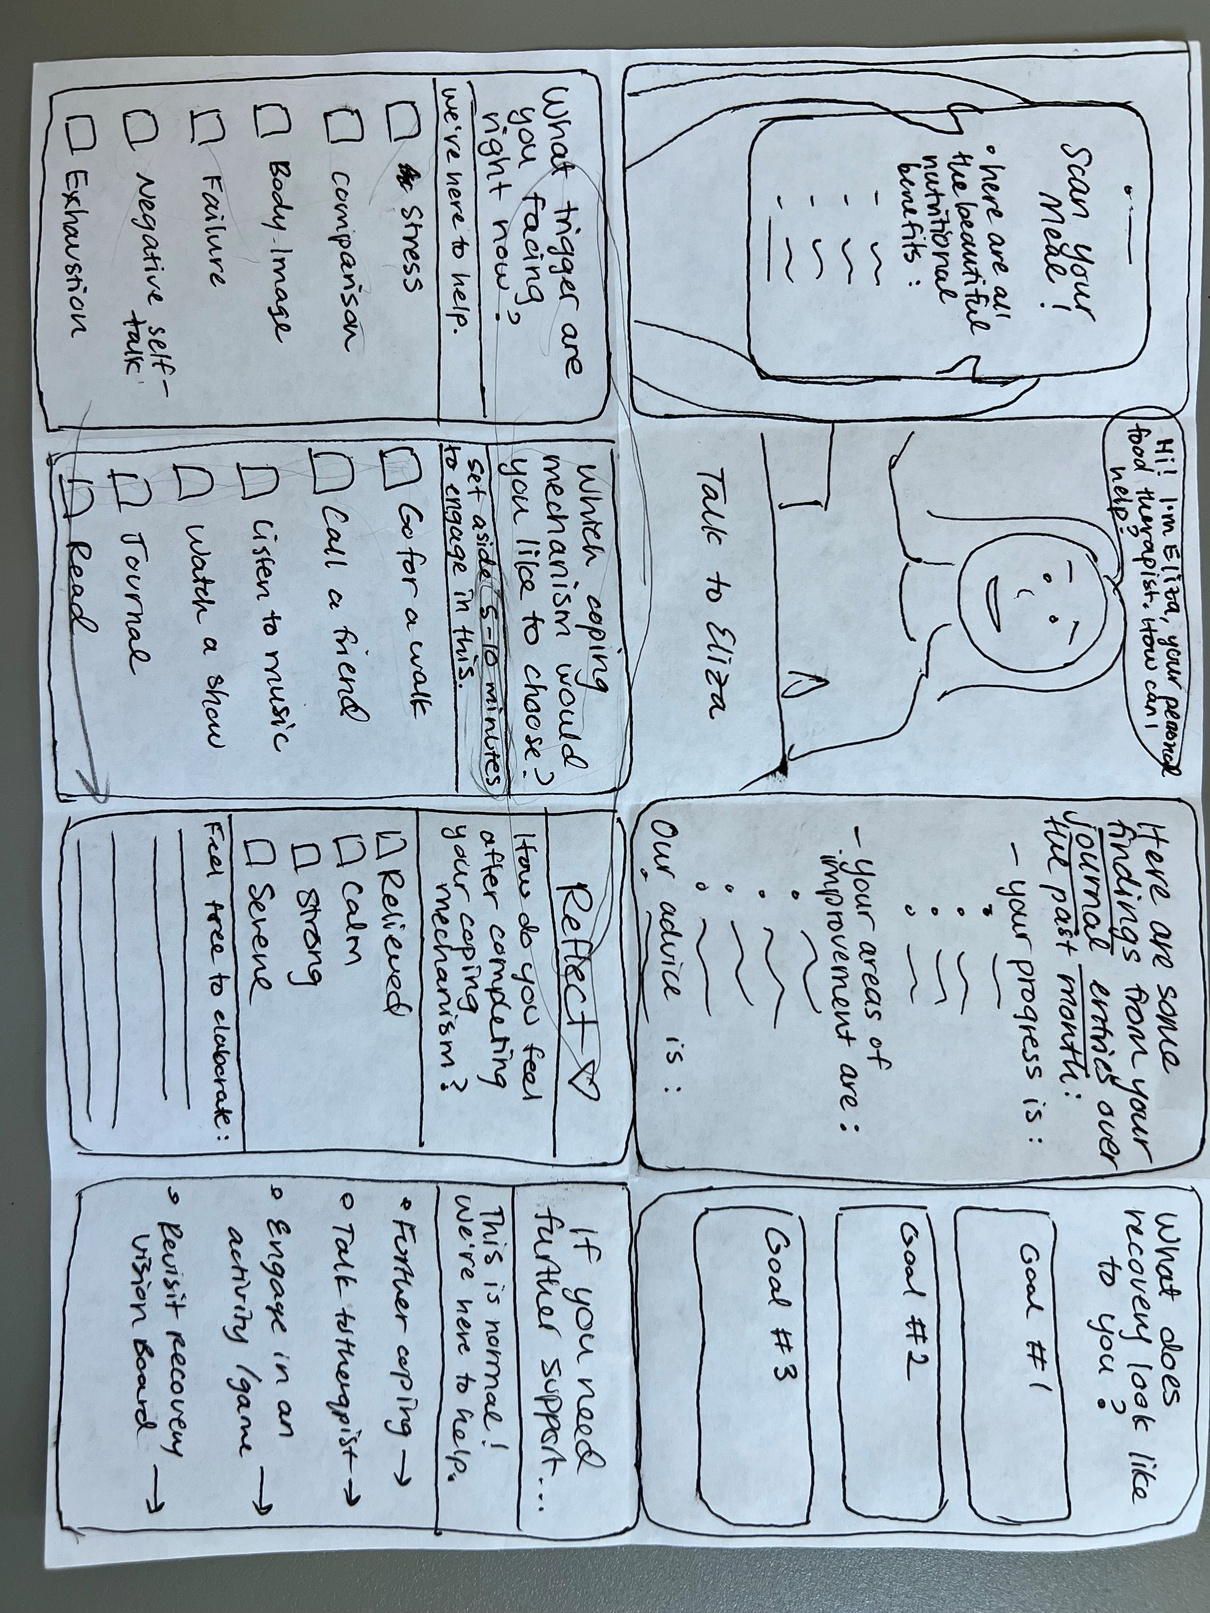 Scan your
Meal!
• here are all
the beautiful
nutritional
benefits:
Hi! I'm Eliza, your personal
food therapist. How can I
help?
Talk to Eliza
Here are some
findings from your
journal entries over
the past month:
- your progress is:
- your areas of
improvement are:
Our advice is:
What does
recovery look like
to you?
Goal #1
Goal #2
Goal #3
What trigger are
you facing
right now?
we're here to help.
Stress
comparison
Body-Image
Failure
Negative self-
talk
Exhaustion
Which coping
mechanism would
you like to choose?
set aside 5-10 minutes
to engage in this.
Go for a walk
Call a friend
Listen to music
Watch a show
Journal
Read
Reflect ♡
How do you feel
after completing
your coping
mechanism?
Relieved
Calm
Strong
Serene
Feel free to elaborate:
If you need
further support...
This is normal!
We're here to help.
• Further coping →
• Talk to therapist →
• Engage in an
activity/game →
• Revisit recovery
vision Board →